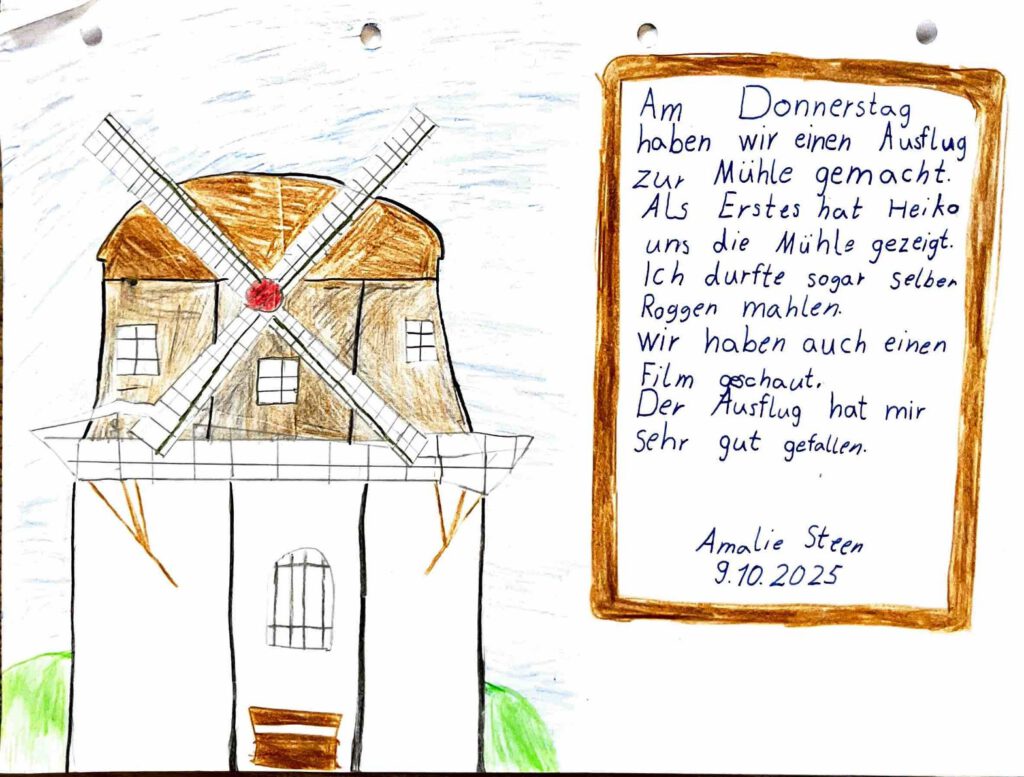 Am Donnerstag
haben wir einen Ausflug
zur Mühle gemacht.
Als Erstes hat Heiko
uns die Mühle gezeigt.
Ich durfte sogar selber
Roggen mahlen.
Wir haben auch einen
Film geschaut.
Der Ausflug hat mir
sehr gut gefallen.
Amalie Steen
9.10.2025